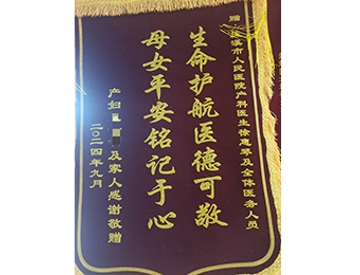 赠 溪市人民医院产科医生徐惠琴及全体医务人员
生命护航医德可敬
母女平安铭记于心
产妇 及家人感谢敬赠
二〇二四年九月